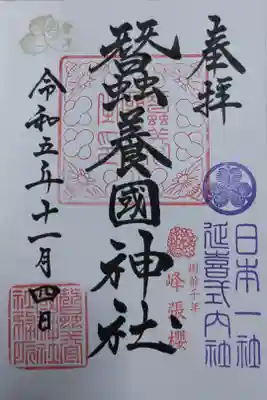 奉拝
日本一社
延喜式内社
樹齢千年
峰張櫻
蠶養國神社
令和五年十一月四日